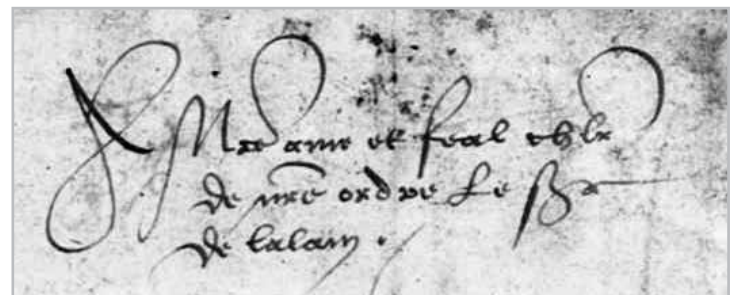 A Nre ame et feal chlr
de nre ordre le Sr
de lalain.